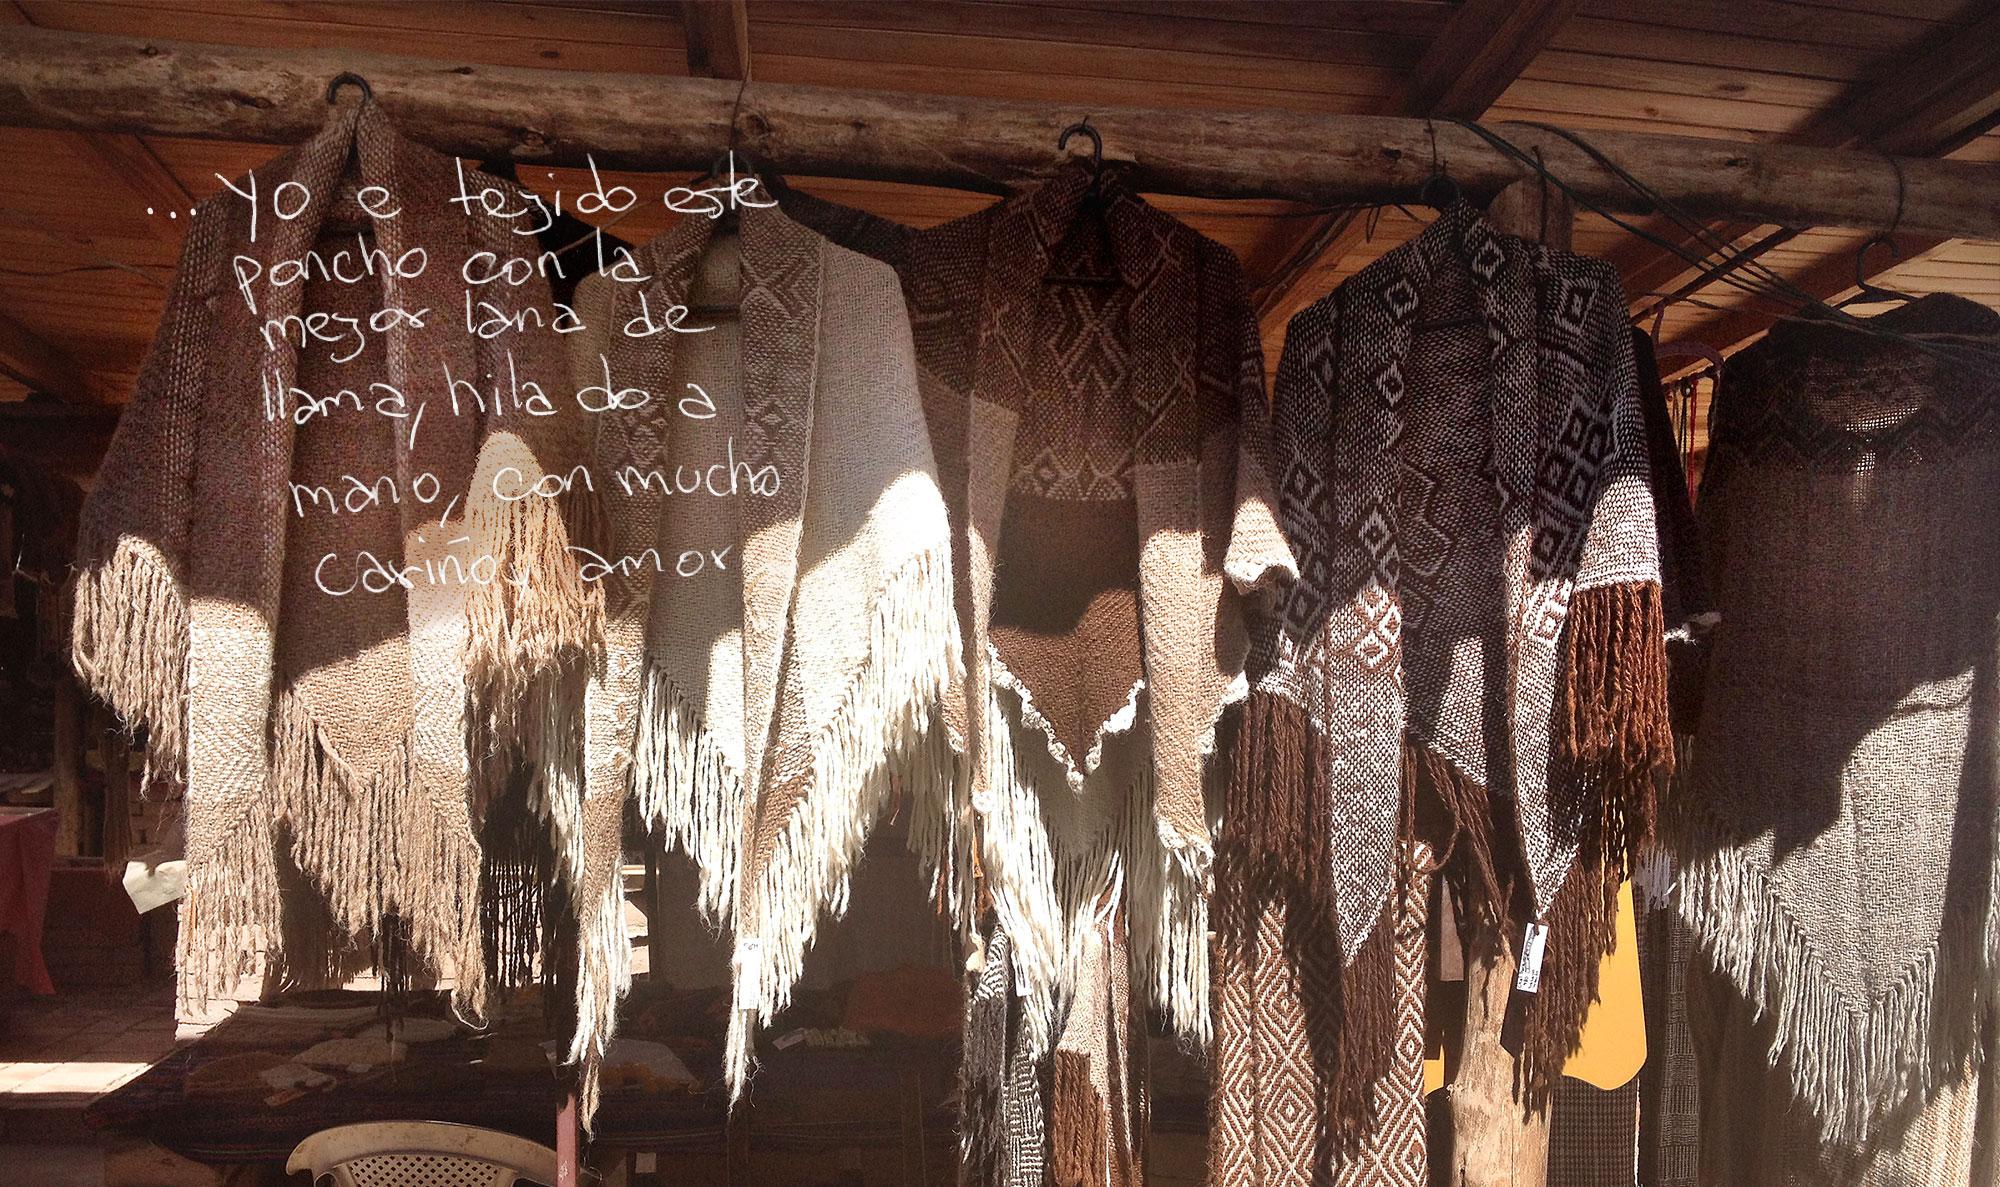 ... yo e tejido este
poncho con la
mejor lana de
llama, hilado a
mano, con mucho
cariño y amor